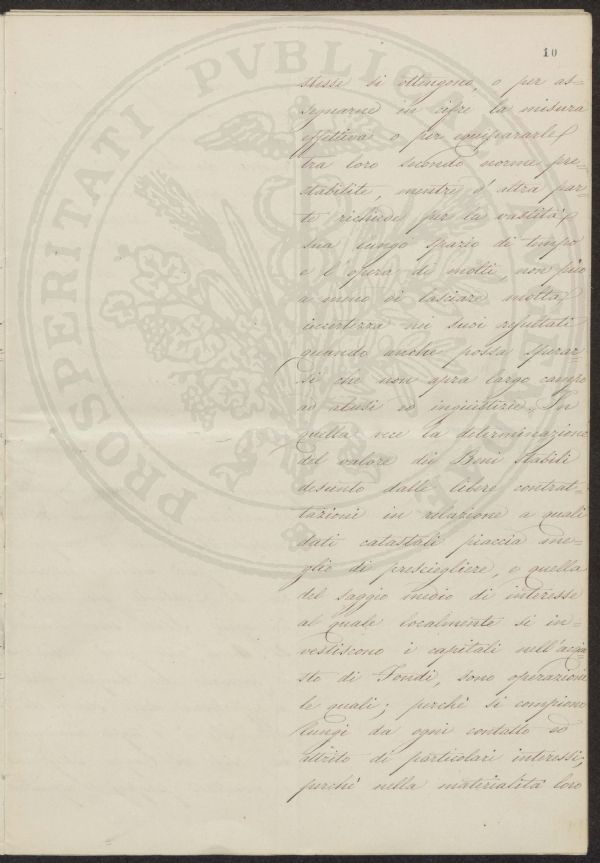 10
stesse si ottengono, o per as=
segnarne in cifre la misura
effettiva o per compararle
tra loro secondo norme pre=
stabilite, mentre d'altra par=
te richiede per la vastità
sua lungo spazio di tempo
e l'opera di molti, non può
a meno di lasciare molta
incertezza nei suoi resultati
quando anche possa sperar=
si che non apra largo campo
ad abusi ed ingiustizie. In
quella vece la determinazione
del valore dei Beni stabili
desunto dalle libere contrat=
tazioni in relazione a quali
dati catastali piaccia me=
glio di prescegliere, e quella
del saggio medio di interesse
al quale localmente si in=
vestiscono i capitali nell'acqui
sto di Fondi, sono operazioni
le quali; perchè si compiono
lungi da ogni contatto ed
attrito di particolari interessi;
perchè nella materialità loro
PROSPERITATI PVBLICAE